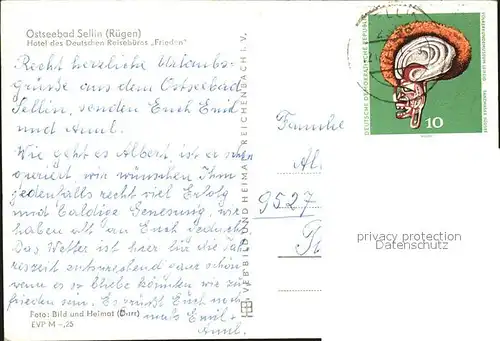 Ostseebad Sellin (Rügen)
Hotel des Deutschen Reisebüros „Frieden"
Recht herzliche Urlaubs-
grüße aus dem Ostseebad
Sellin, senden Euch Emil
und Anni.
Wie geht es Albert, ist er schon
operiert, wir wünschen Ihm
jedenfalls recht viel Erfolg
und baldige Genesung, wir
haben oft an Euch gedacht.
Das Wetter ist hier für die Jah-
reszeit entsprechend ganz schön
wenn es so bliebe könnten wir zu-
frieden sein. Es grüßt Euch noch-
mals Emil +
Anni.
Foto: Bild und Heimat (Darr)
EVP M –,25
VEB BILD UND HEIMAT REICHENBACH I. V.
Familie
Al
9527
DEUTSCHE DEMOKRATISCHE REPUBLIK
VÖLKERKUNDEMUSEUM LEIPZIG
10
privacy protection
Datenschutz